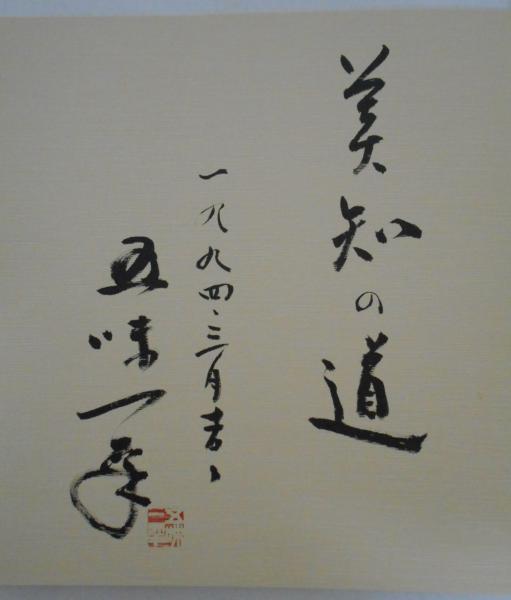 美知の道
一九九四、三月吉日
五味一